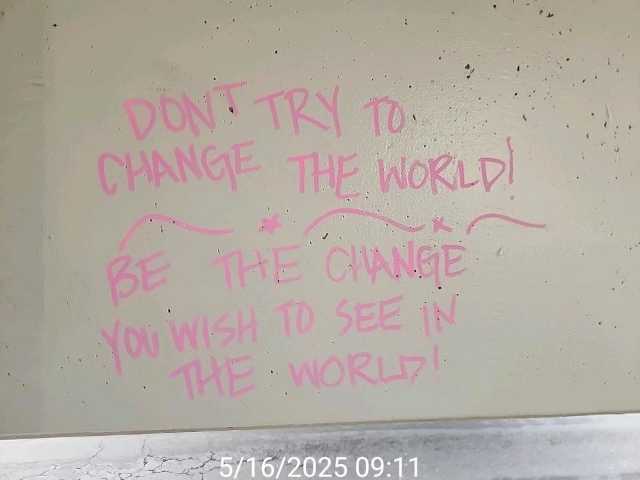 DONT TRY TO
CHANGE THE WORLD!
BE THE CHANGE
YOU WISH TO SEE IN
THE WORLD!
5/16/2025 09:11